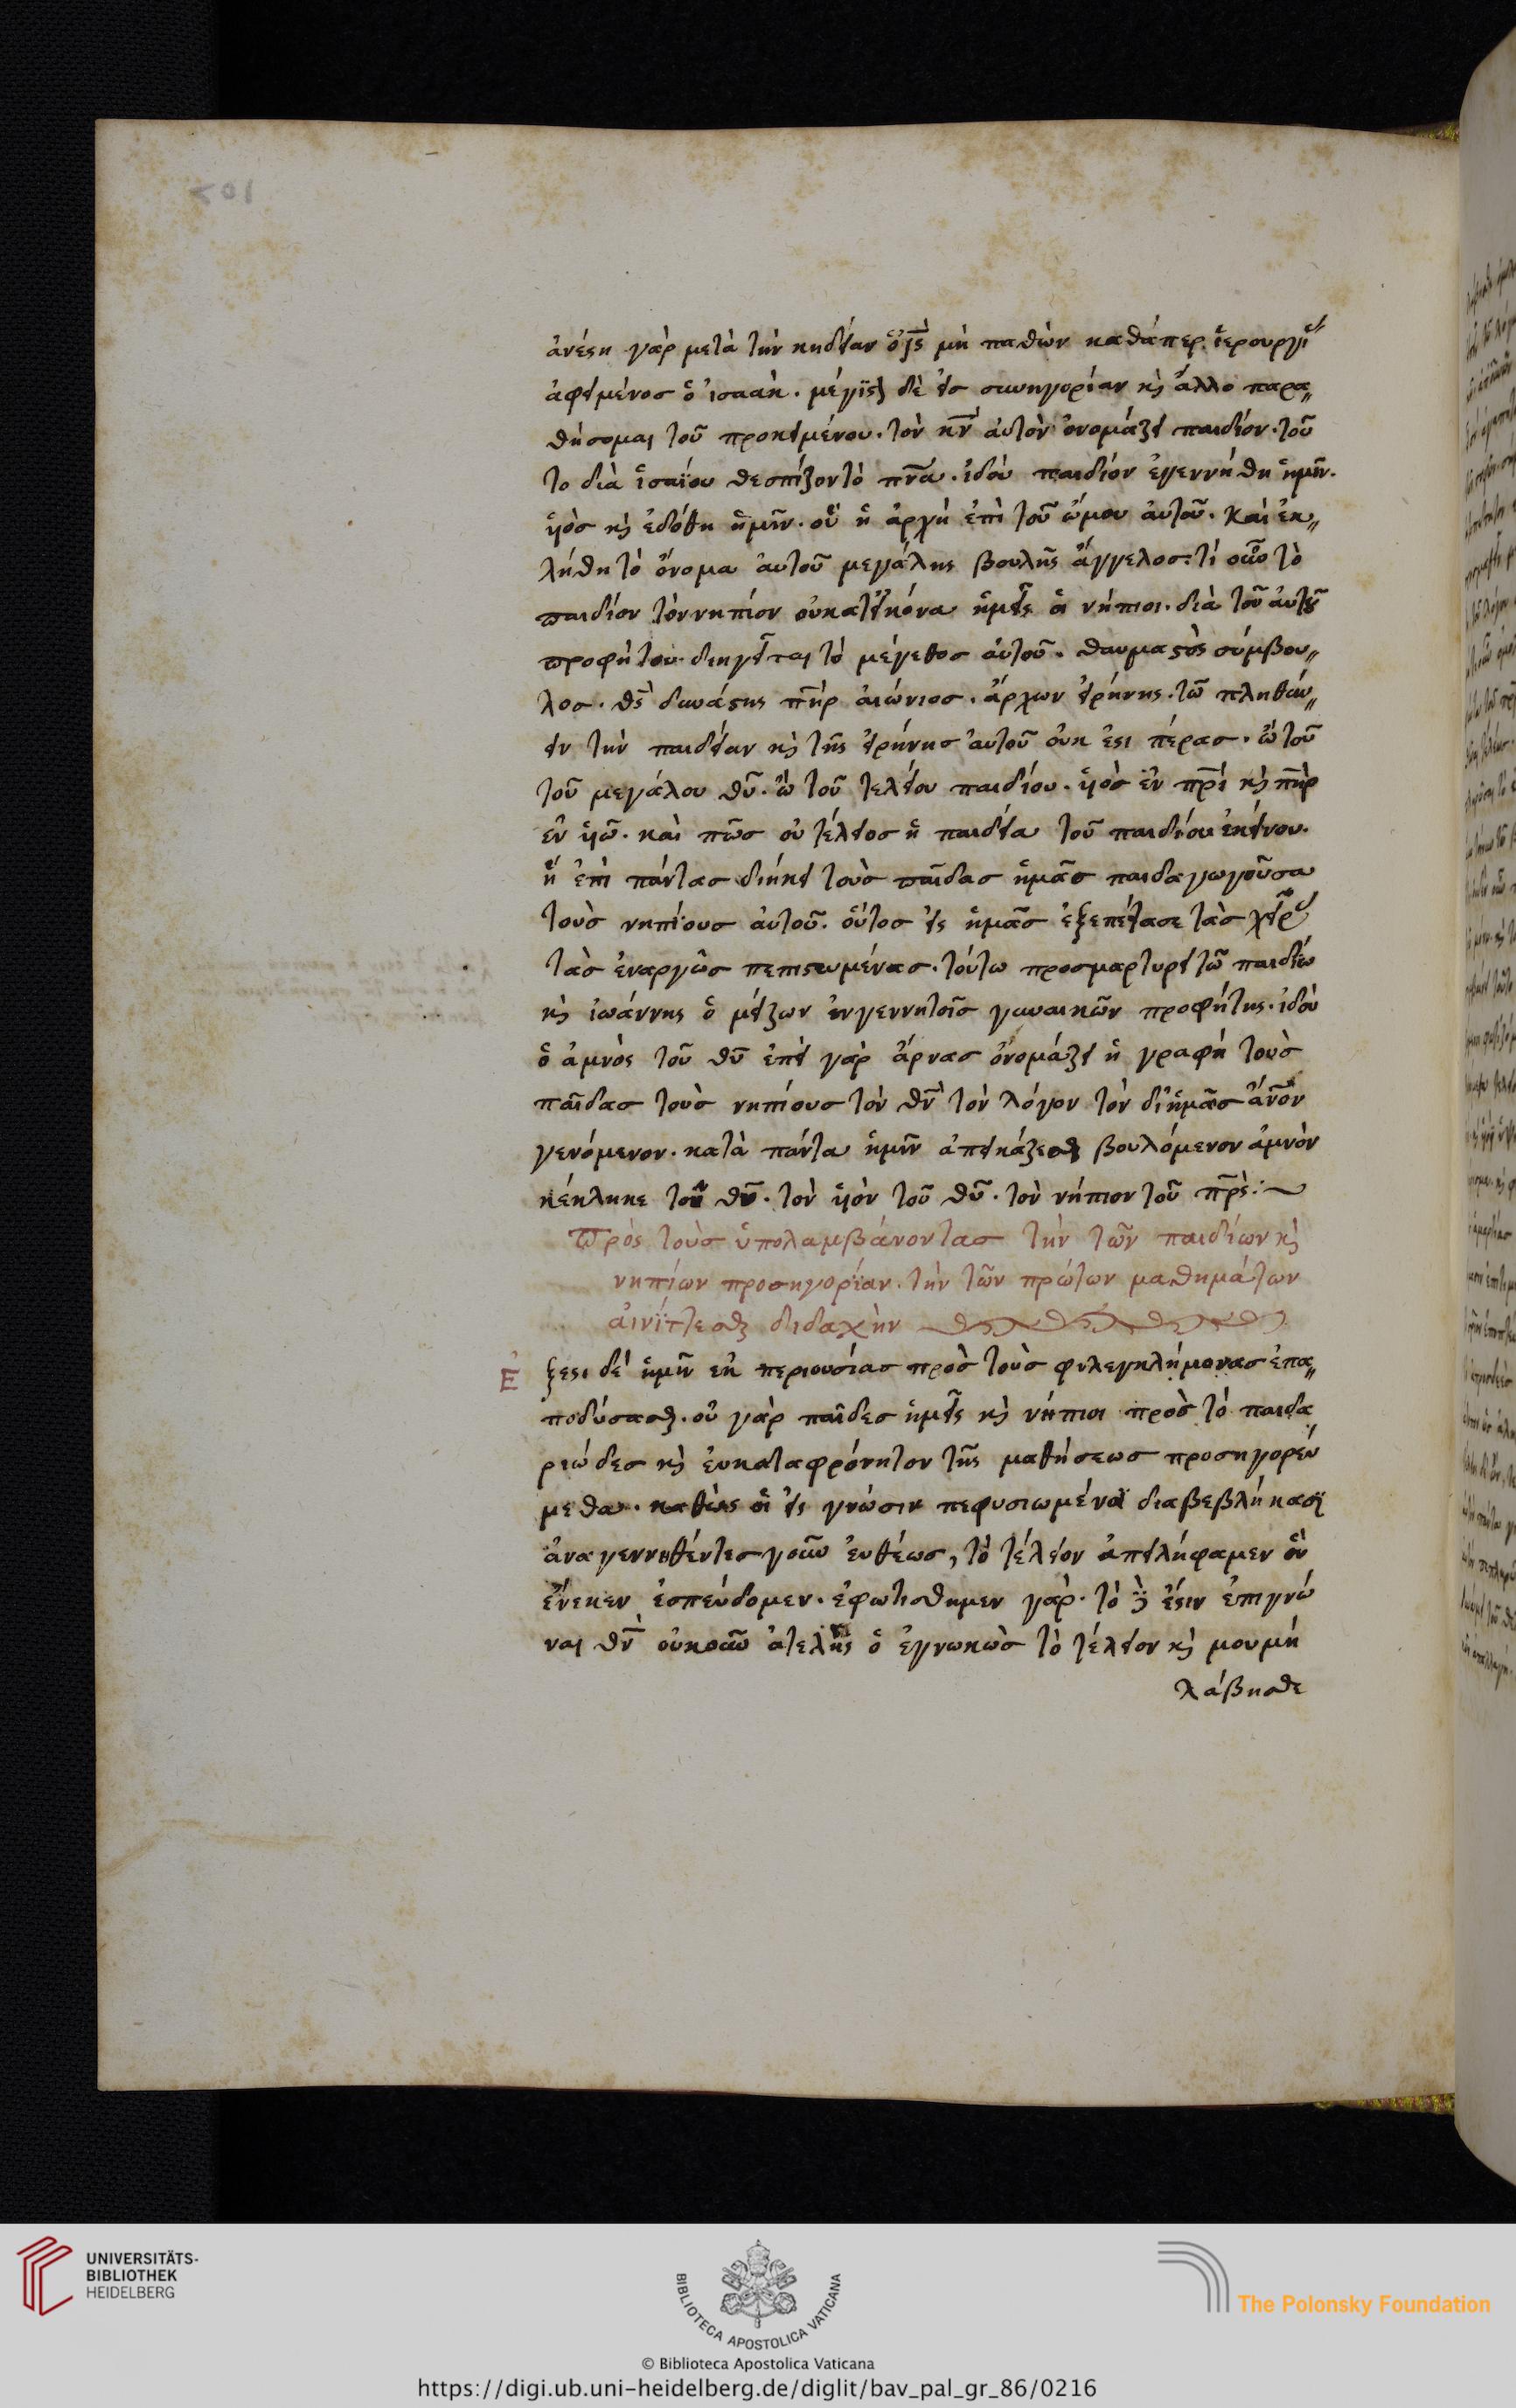 ἀνέστη γὰρ μετὰ τὴν κηδείαν ὁ ι̅ς̅ μὴ παθὼν καθάπερ ἱερουργί
ἀφειμένος ὁ ἰσαάκ. μέγιστ δὲ εἰς συνηγορίαν κὶ ἄλλο παρα
θήσομαι τοῦ προκειμένου. τὸν κ̅ν̅ αὐτὸν ὀνομάζει παιδίον. τοῦ
το διὰ ἡσαΐου θεσπίζον τὸ π̅ν̅α̅. ἰδοὺ παιδίον ἐγεννήθη ἡμῖν.
ὑὸς κὶ ἐδόθη ἡμῖν. οὗ ἡ ἀρχὴ ἐπὶ τοῦ ὤμου αὐτοῦ. καὶ ἐκ
λήθη τὸ ὄνομα αὐτοῦ μεγάλης βουλῆς ἄγγελος. τί οὖν τὸ
παιδίον τὸν νηπίον οὐκατεικόνα ἡμεῖς οἱ νήπιοι. διὰ τοῦ αὐτοῦ
προφήτου διηγεῖται τὸ μέγεθος αὐτοῦ. θαυμαστὸς σύμβου
λος. θ̅ς̅ δυνάστης π̅η̅ρ̅ αἰώνιος. ἄρχων εἰρήνης. τῶ πληθύν
ειν τὴν παιδείαν κὶ τῆς εἰρήνης αὐτοῦ οὐκ ἔστι πέρας. ὢ τοῦ
τοῦ μεγάλου θ̅υ̅. ὢ τοῦ τελείου παιδίου. ὑὸς ἐν π̅ρ̅ι̅ κὶ π̅η̅ρ̅
ἐν ὑῶ. καὶ πῶς οὐ τέλειος ἡ παιδεία τοῦ παιδίου ἐκείνου.
ἣ ἐπὶ πάντας διήκει τοὺς παῖδας ἡμᾶς παιδαγωγοῦσα
τοὺς νηπίους αὐτοῦ. οὗτος εἰς ἡμᾶς ἐξεπέτασε τὰς χεῖρ
τὰς ἐναργῶς πεπιστευμένας. τούτω προσμαρτυρεῖ τῶ παιδίω
κὶ ἰωάννης ὁ μείζων ἐν γεννητοῖς γυναικῶν προφήτης. ἰδοὺ
ὁ ἀμνὸς τοῦ θ̅υ̅ ἐπεὶ γὰρ ἄρνας ὀνομάζει ἡ γραφὴ τοὺς
παῖδας τοὺς νηπίους τὸν θ̅ν̅ τὸν λόγον τὸν δι' ἡμᾶς α̅ν̅ο̅ν̅
γενόμενον. κατὰ πάντα ἡμῖν ἀπεικάζεσθ βουλόμενον ἀμνὸν
κέκληκε τοῦ θ̅υ̅. τὸν ὑὸν τοῦ θ̅υ̅. τὸν νήπιον τοῦ π̅ρ̅ς̅:~
Πρὸς τοὺς ὑπολαμβάνοντας τὴν τῶν παιδίων κὶ
νηπίων προσηγορίαν. τὴν τῶν πρώτων μαθημάτων
αἰνίττεσθ διδαχὴν
Ἐ ξεστι δὲ ἡμῖν ἐκ περιουσίας πρὸς τοὺς φιλεγκλήμονας ἐπα
ποδύσασθ. οὐ γὰρ παῖδες ἡμεῖς κὶ νήπιοι πρὸς τὸ παιδα
ριώδες κὶ εὐκαταφρόνητον τῆς μαθήσεως προσηγορεύ
μεθα. καθὼς οἱ εἰς γνῶσιν πεφυσιωμένοι διαβεβλήκασι
ἀναγεννηθέντες γοῦν εὐθέως, τὸ τέλειον ἀπειλήφαμεν οὗ
ἕνεκεν ἐσπεύδομεν. ἐφωτίσθημεν γάρ. τὸ δέ ἐστιν ἐπιγνῶ
ναι θ̅ν̅ οὐκοῦν ἀτελὴς ὁ ἐγνωκὼς τὸ τέλειον κὶ μου μὴ
λάβησθε
UNIVERSITÄTS-
BIBLIOTHEK
HEIDELBERG
BIBLIOTECA APOSTOLICA VATICANA
The Polonsky Foundation
© Biblioteca Apostolica Vaticana
https://digi.ub.uni-heidelberg.de/diglit/bav_pal_gr_86/0216